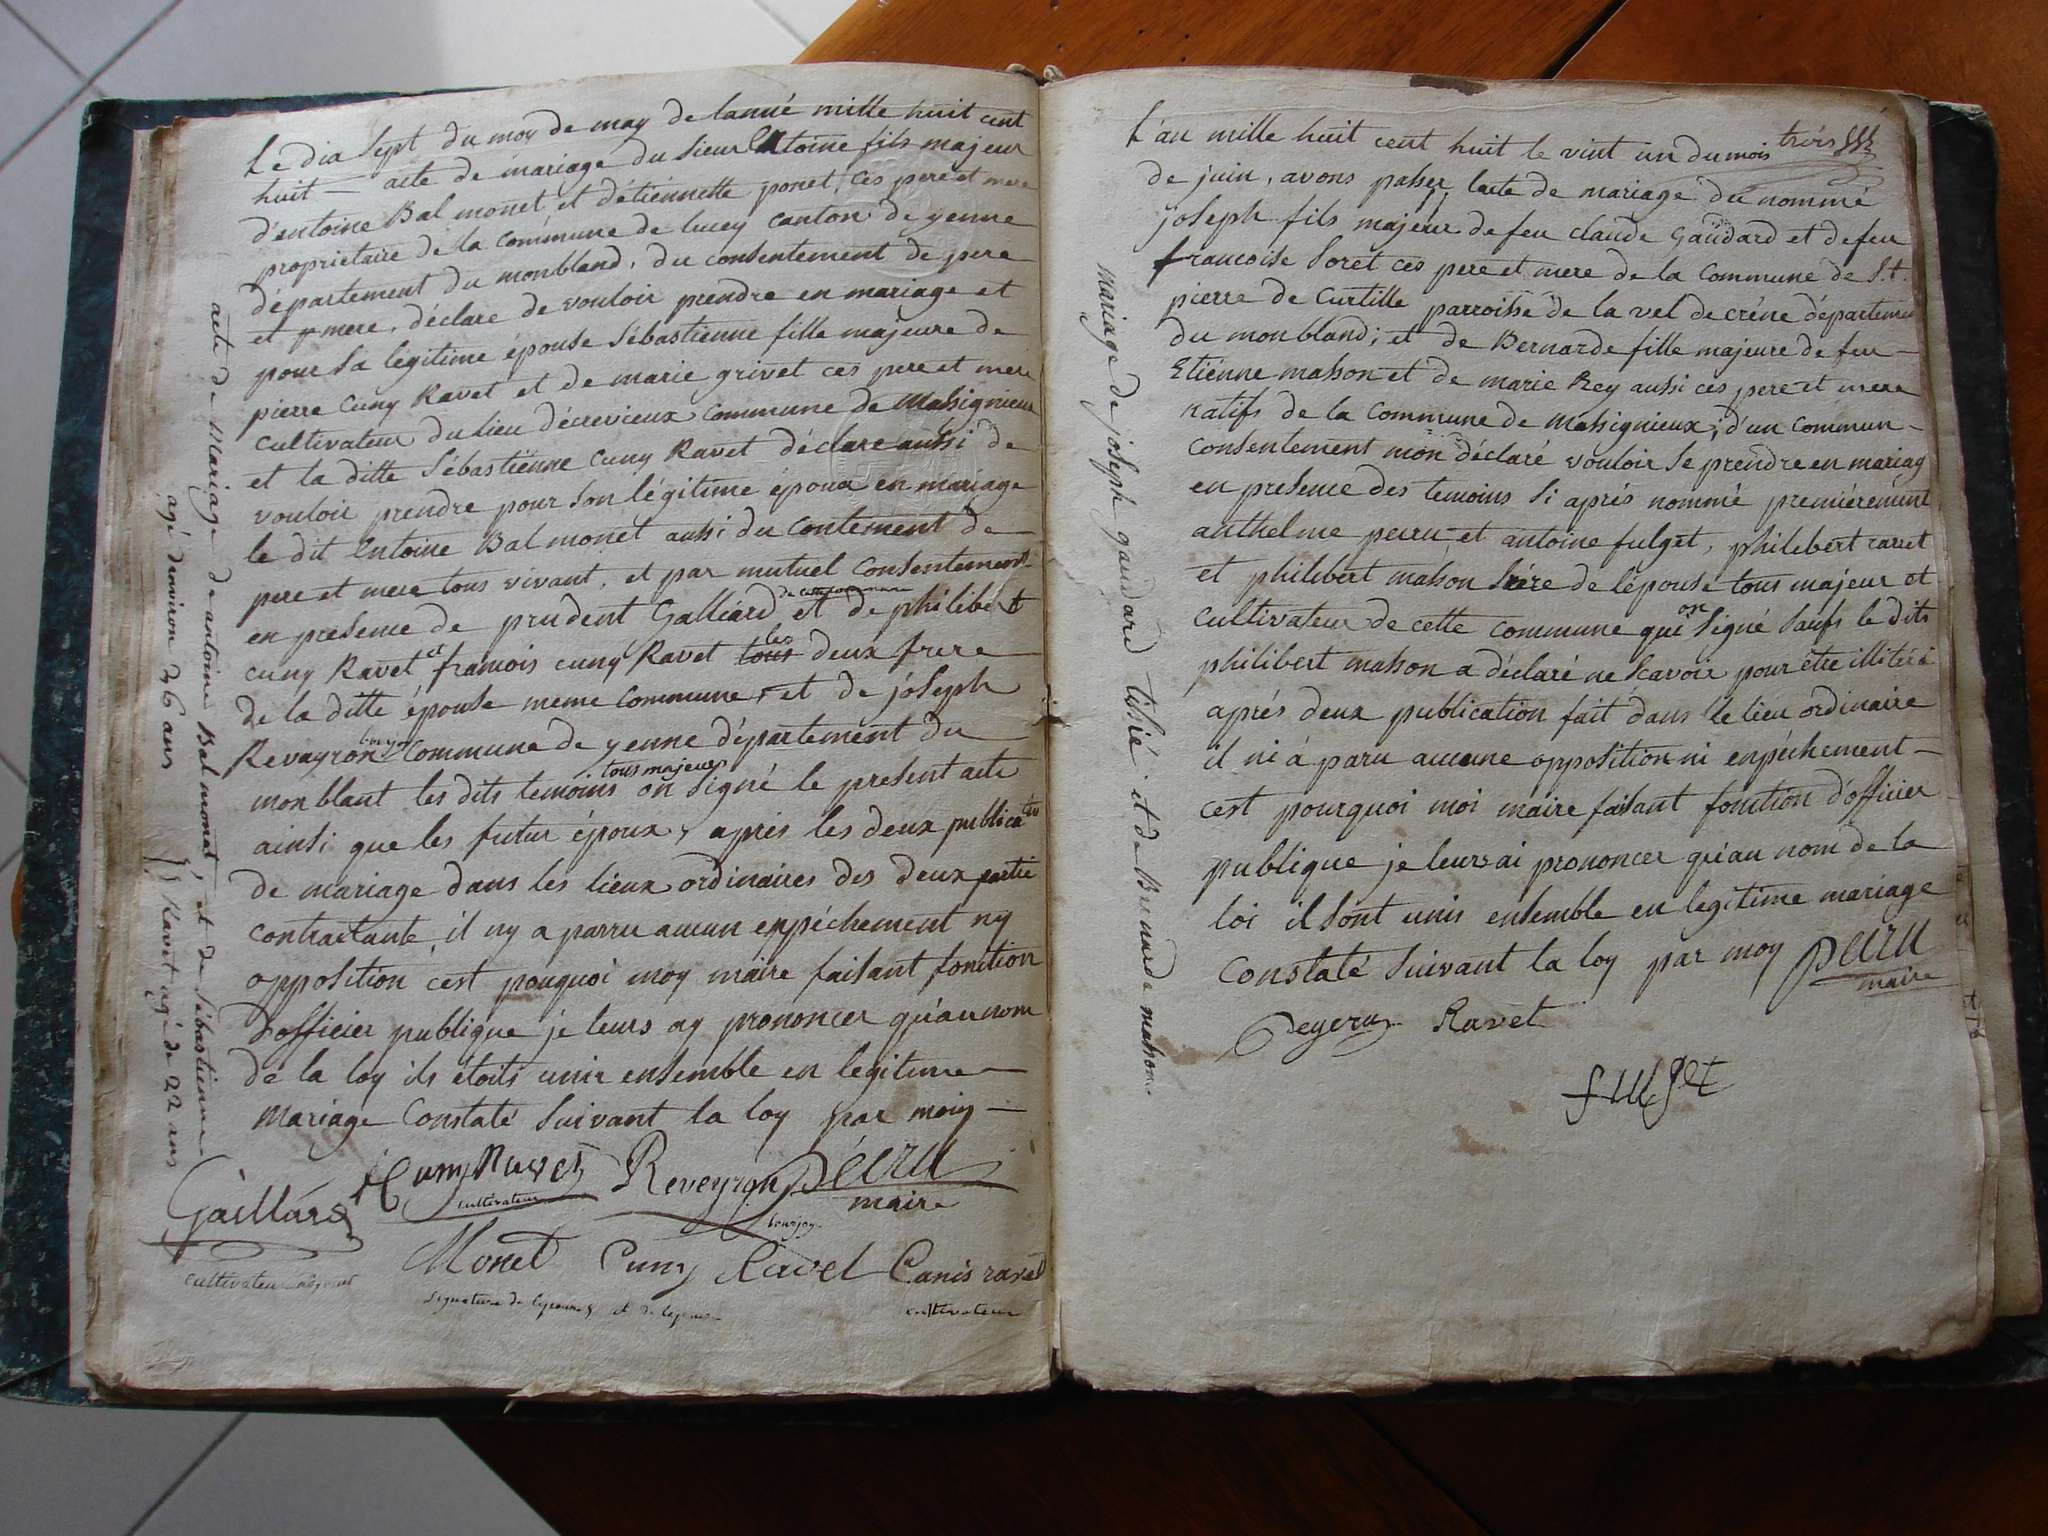 Le dix Sept du moy de may de lanné mille huit cent
huit — acte de mariage du Sieur Entoine fils majeur
d'entoine Bal monet et d'étiénnette ponet, ces pere et mere
proprietaire de la Commune de lucey canton de yenne
département du monbland, du consentement de pere
et mere, déclare de vouloir prendre en mariage et
pour Sa légitime épouse Sébastienne fille majeure de
pierre Cuny Ravet et de marie grivet ces pere et mere
cultivateur du lieu décrevieux commune de Massignieux
et la ditte Sébastiënne Cuny Ravet déclare aussi de
vouloir prendre pour Son légitime époux en mariage
le dit Entoine Bal monet aussi du Contement de
pere et mere tous vivant. et par mutuel Consentement
de cette commune
en presense de prudent Galliard et de philibert
cuny Ravet et francois cuny Ravet tous les deux frere
de la ditte épouse meme commune, et de joseph
Revayron bourjois Commune de yenne département du
tous majeurs
mon blant les dits temoins on Signé le present acte
ainsi que les futur époux, aprés les deux publications
de mariage dans les lieux ordinaires des deux partie
contractante, il ny a parru aucun enpéchement ny
opposition cést pouquoi moy maire faisant fonction
d'officier publique je leurs ay prononcer qu'au nom
de la loy ils étoits unir ensemble en legitime
Mariage Constaté Suivant la loy par moiy —
Gaillard
cultivateur adjoint
Cuny Ravet
cultivateur
Reveyron
bourjoy
Péeru
maire
Monet Cuny Ravet
Signature de lepoux et de lepouse
Canis ravet
cultivateur
acte de Mariage de antoine Bal monet, et de Sébastienne
agé denviron 36 ans Ravet agé de 22 ans
trois
L'an mille huit cent huit le vint un du mois
de juin, avons passer lacte de mariage du nommé
joseph fils majeur de feu claude Gaudard et de feu
francoise Soret ces pere et mere de la Commune de S.t
pierre de Curtille parroisse de la vel de créne départemen
du monbland; et de Bernarde fille majeure de feu —
Etiénne masson et de marie Rey aussi ces pere et mere
natifs de la Commune de Massignieux, d'un commun —
Consentement mon déclaré vouloir Se prendre en mariag
en presense des temoins Si aprés nommé premiérement
anthelme perru et antoine fulget, philibert ravet
et philibert masson frére de lépouse tous majeur et
cultivateur de cette commune qui on Signé Saufs le dits
philibert masson a déclaré ne Scavoir pour étre illitéré
aprés deux publication fait dans le lieu ordinaire
il ni à paru aucune opposition ni enpéchement —
cest pourquoi moi maire faisant fonction d'officier
publique je leurs ai prononcer qu'au nom de la
loi il Sont unis ensemble en legitime mariage
Constaté Suivant la loy par moy Péeru
maire
Peyeru Ravet
fulget
mariage de joseph gaudard tisié. et de Bernarde masson.